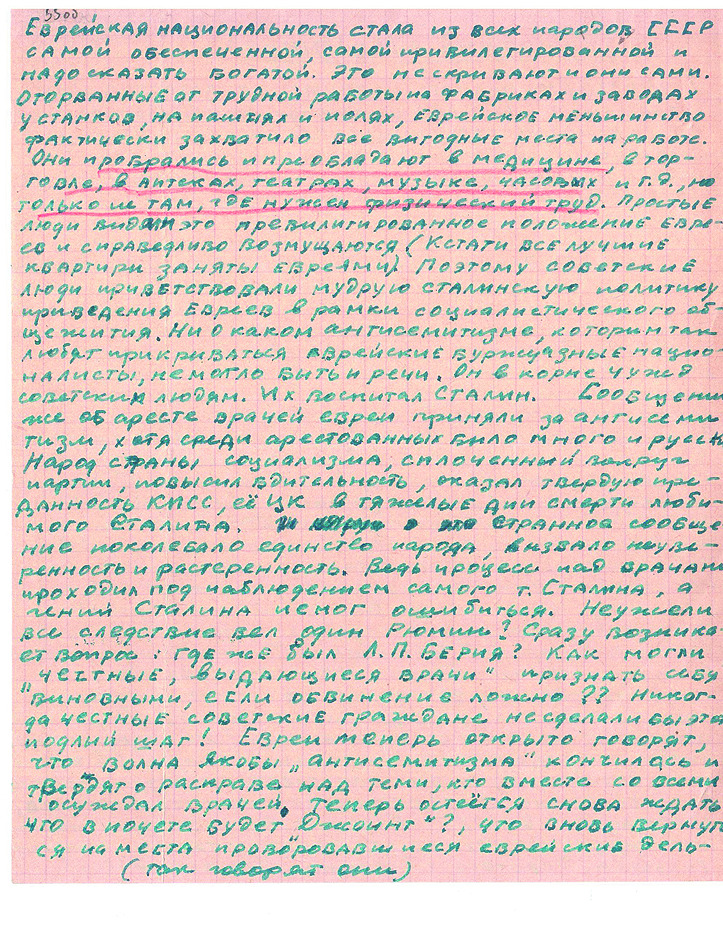 5500
Еврейская национальность стала из всех народов СССР
самой обеспеченной, самой привилегированной и
надо сказать богатой. Это не скривают и они сами.
Оторванные от трудной работы на фабриках и заводах
у станков, на пашнях и полях, еврейское меньшинство
фактически захватило все выгодные места на работе.
Они пробрались и преобладают в медицине, в тор-
говле, в аптеках, театрах, музыке, часовых и т.д., но
только не там, где нужен физический труд. Простые
люди видят это превилигированное положение евре-
ев и справедливо возмущаются (Кстати все лучшие
квартири заняты евреями) Поэтому советские
люди приветствовали мудрую сталинскую политику
приведения евреев в рамки социалистического об-
щежития. Ни о каком антисемитизме, которим так
любят прикриваться еврейские буржуазные нацио-
налисты, не могло быть и речи. Он в корне чужд
советским людям. Их воспитал Сталин. Сообщени
же об аресте врачей евреи приняли за антисеми
тизм, хотя среди арестованных било много и русск
Народ страны социализма, сплоченный вокруг
партии, повысил бдительность, оказал твердую пре-
данность КПСС, её ЦК в тяжелые дни смерти люби-
мого Сталина. Странное сообще
ние поколебало единство народа, визвало неуве-
ренность и растеренность. Ведь процесс над врачами
проходил под наблюдением самого т. Сталина, а
гений Сталина не мог ошибиться. Неужели
все следствие вел один Рюмин? Сразу возника-
ет вопрос: где же был Л.П. Берия? Как могли
„честные, выдающиеся врачи" признать себя
виновными, если обвинение ложно?? Никог-
да честные советские граждане не сделали бы этот
подлий шаг! Евреи теперь открыто говорят,
что волна якобы „антисемитизма" кончилась и
твердят о расправе над теми, кто вместе со всеми
осуждал врачей. Теперь остётся снова ждать
что в почете будет „Джоинт"?, что вновь вернут
ся на места проворовавшиеся еврейские дель-
(так говорят они)